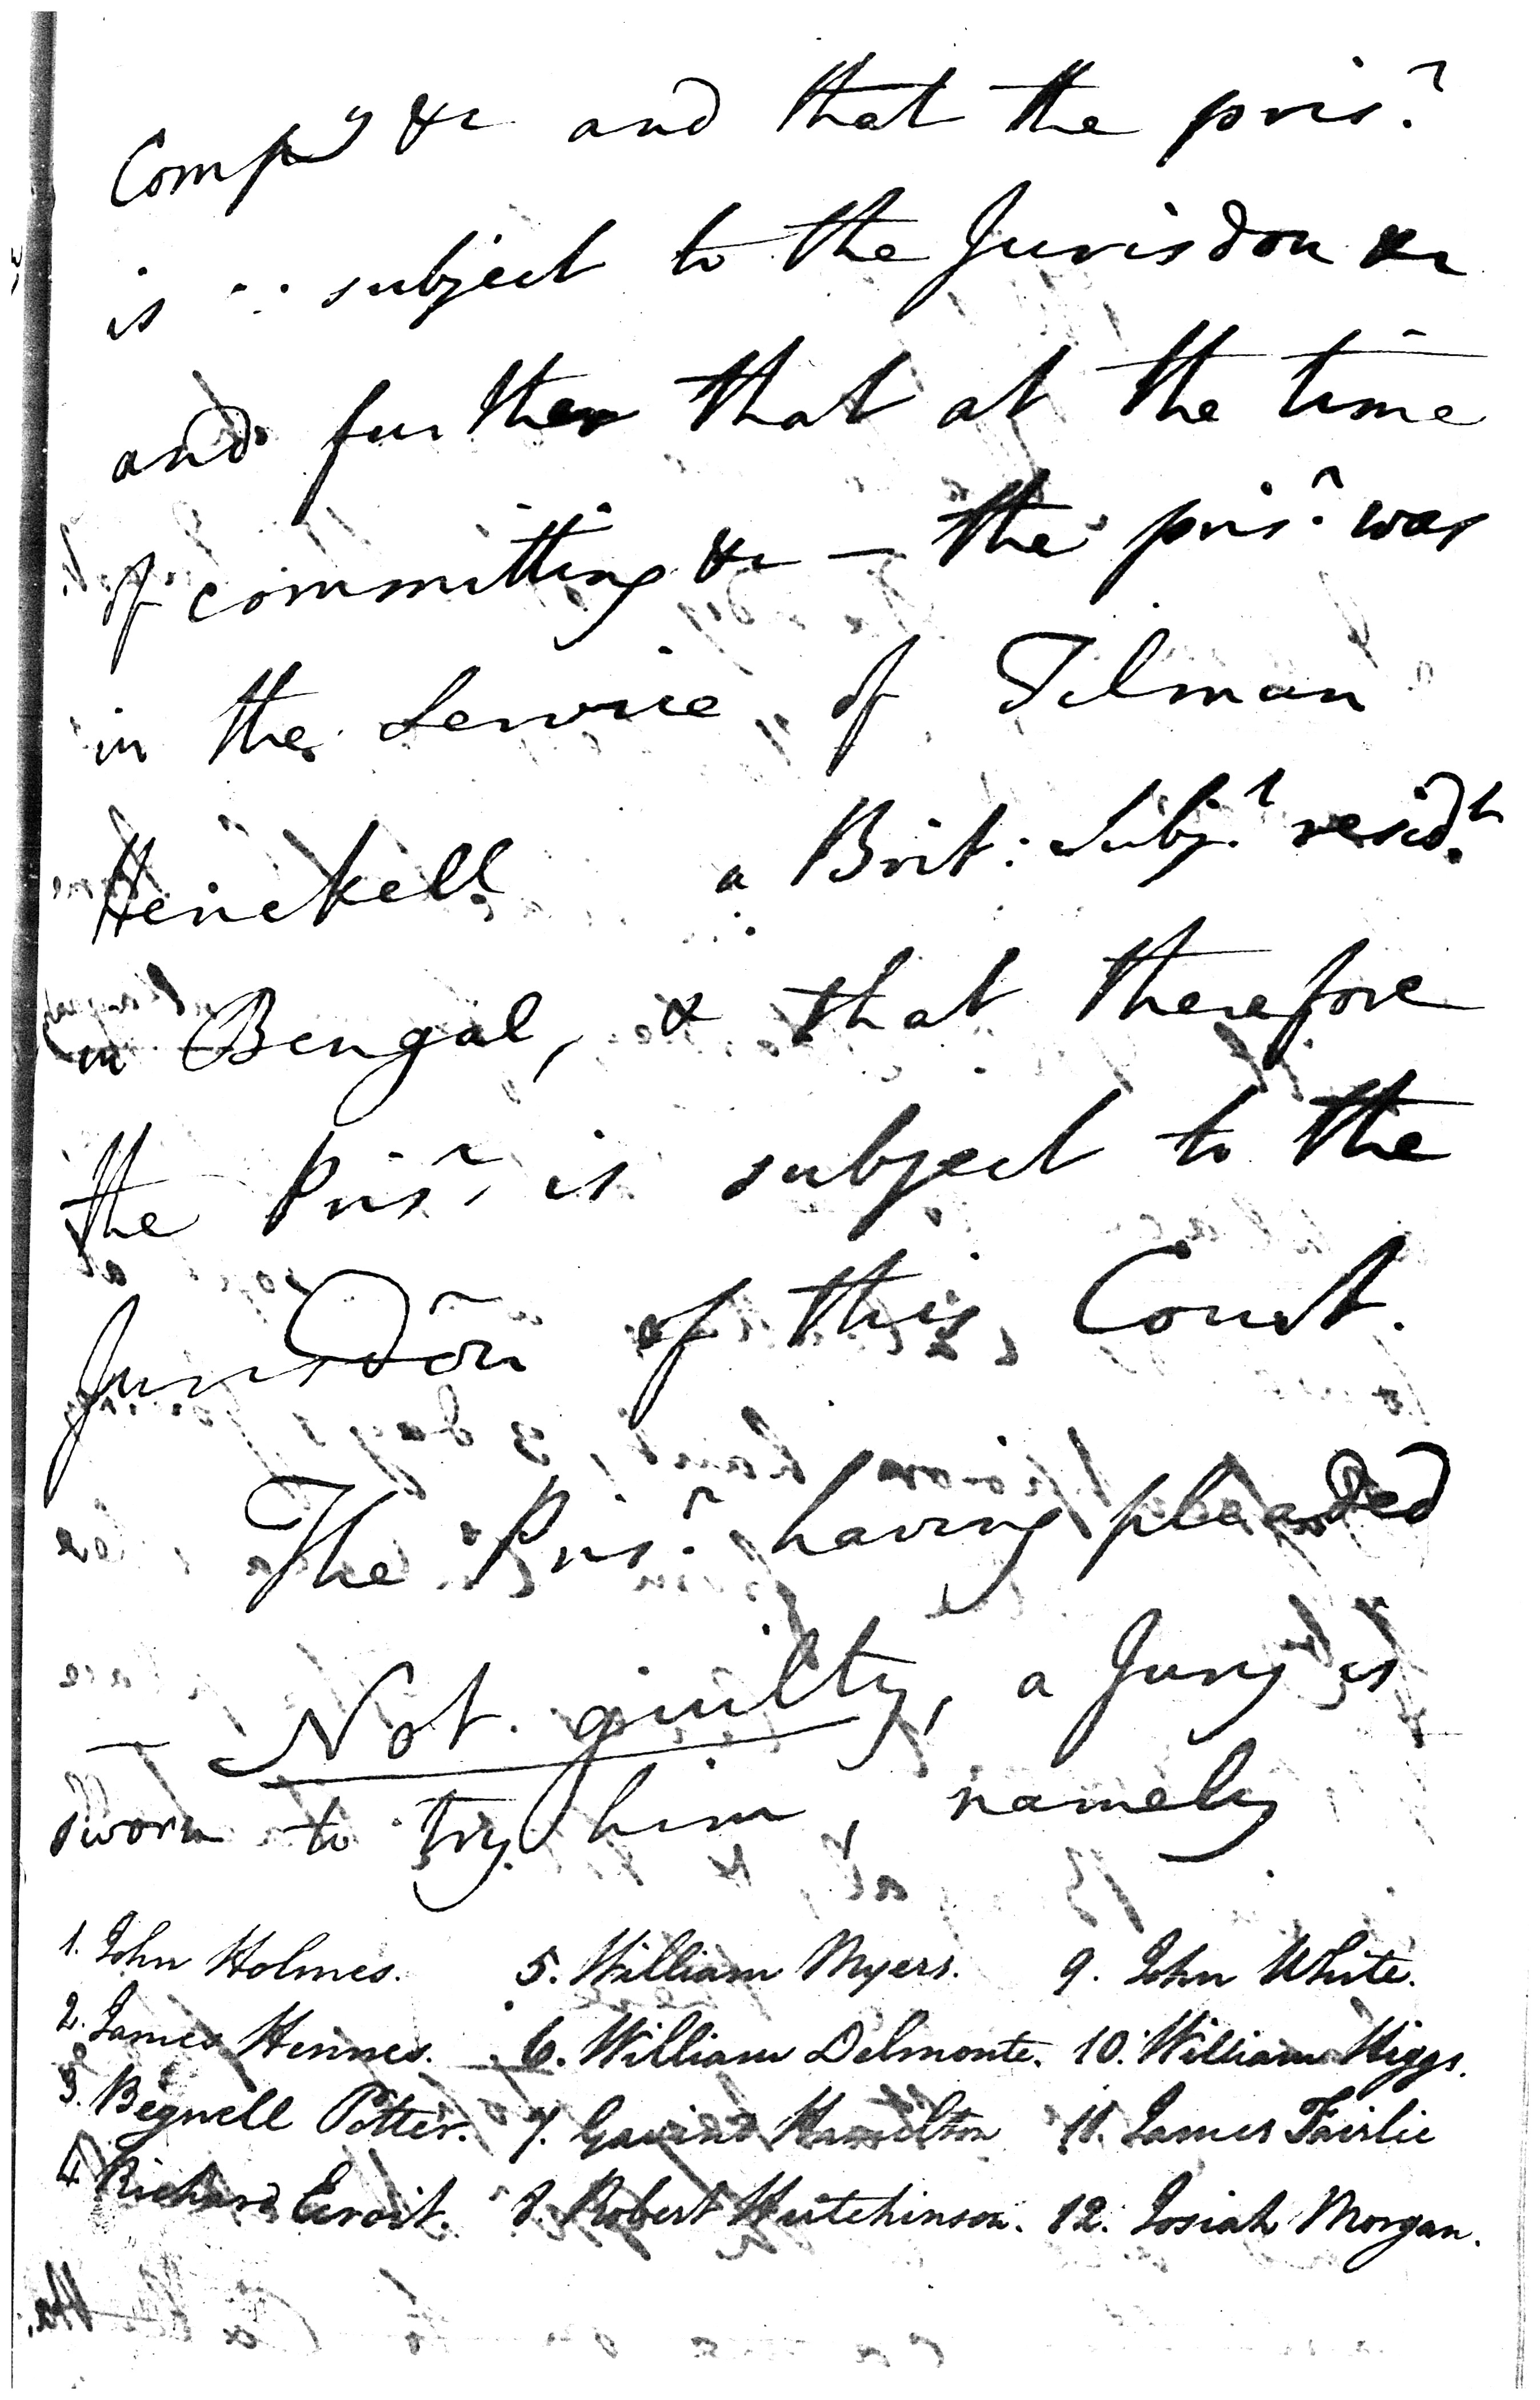 Comp.y &c and that the pris.r
is ∴ subject to the Jurisdon &c
and further that at the time
of committing &c — the pris.r was
in the Service of Tilman
Henckell a Brit: Subj.t resid.t
in Bengal, & that therefore
the Pris.r is subject to the
Jurisdõn of this Court.
The Pris.r having pleaded
— Not guilty, a Jury is
sworn to try him, namely
1. John Holmes. 5. William Myers. 9. John White.
2. James Hennes. 6. William Delmonte. 10. William Higgs.
3. Begnell Potter. 7. Gavin Hamilton 11. James Fairlie
4. Richard 8. Robert Hutchinson. 12. Josiah Morgan.